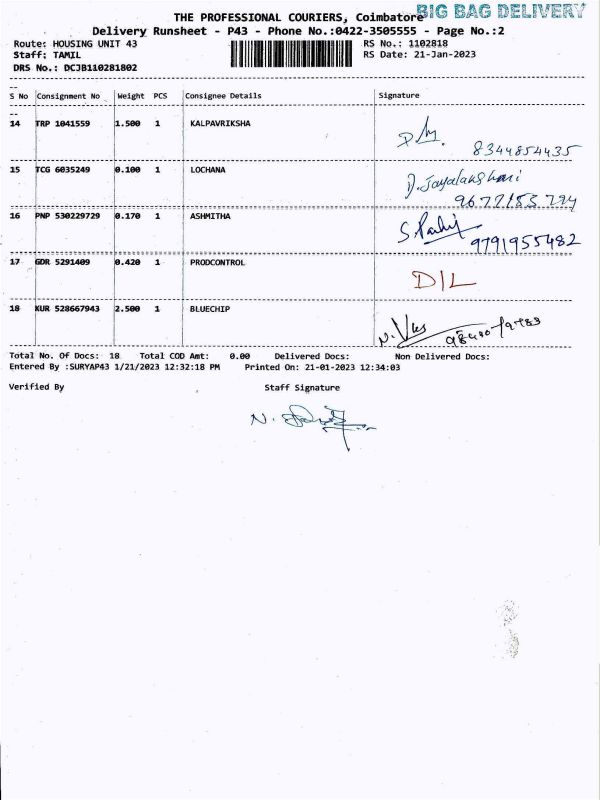 BIG BAG DELIVERY
THE PROFESSIONAL COURIERS, Coimbatore
Delivery Runsheet - P43 - Phone No.:0422-3505555 - Page No.:2
Route: HOUSING UNIT 43 RS No.: 1102818
Staff: TAMIL RS Date: 21-Jan-2023
DRS No.: DCJB110281802
S No Consignment No Weight PCS Consignee Details Signature
14 TRP 1041559 1.500 1 KALPAVRIKSHA
8344854435
15 TCG 6035249 0.100 1 LOCHANA
16 PNP 530229729 0.170 1 ASHMITHA
9791955482
17 GDR 5291409 0.420 1 PRODCONTROL D/L
18 KUR 528667943 2.500 1 BLUECHIP
Total No. Of Docs: 18 Total COD Amt: 0.00 Delivered Docs: Non Delivered Docs:
Entered By :SURYAP43 1/21/2023 12:32:18 PM Printed On: 21-01-2023 12:34:03
Verified By Staff Signature